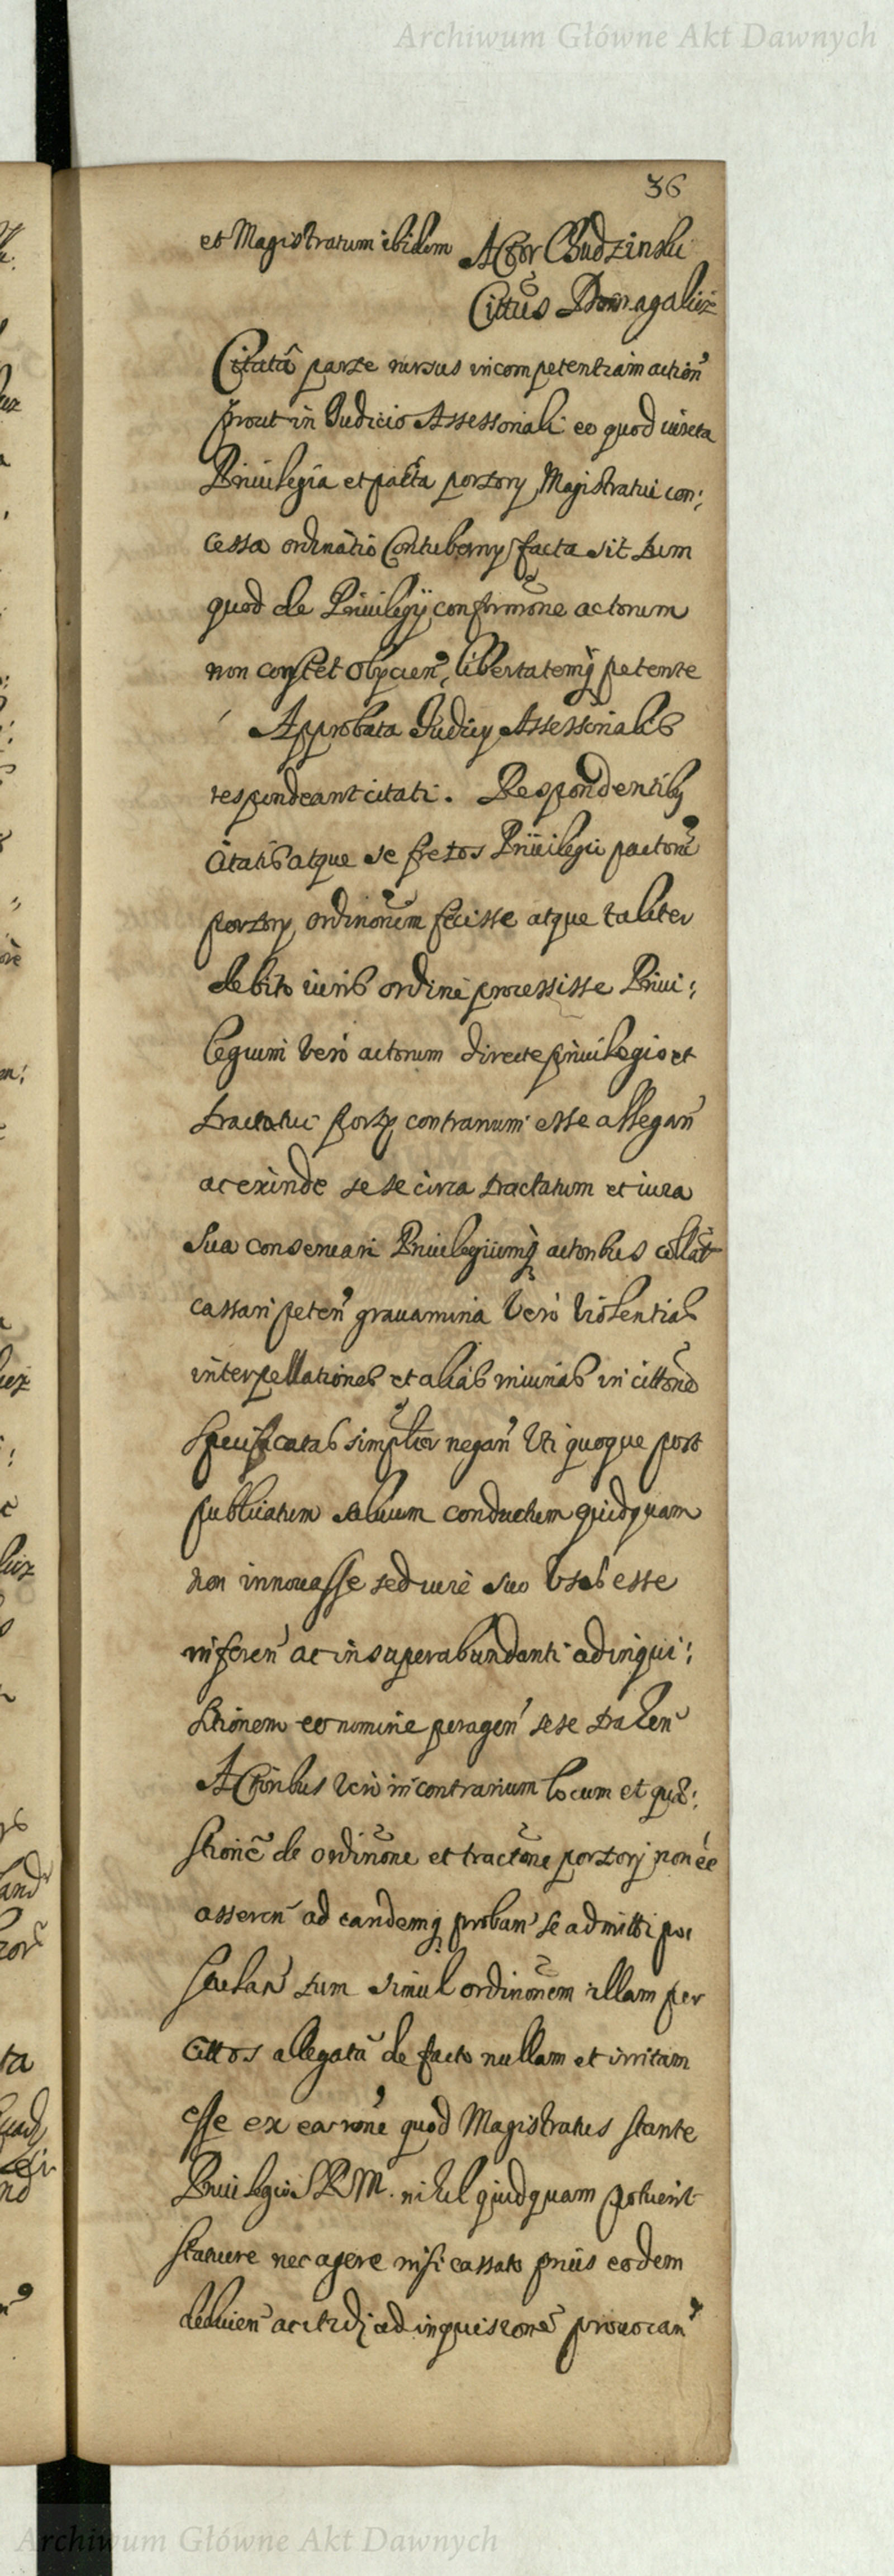 Archiwum Główne Akt Dawnych
36
et Magistratum ibidem Actor Chudzinski
Cittus Domagalicz
Citata parte rursus incompetentiam action
prout in Iudicio Assessoriali eo quod iuxta
Priuilegia et pacta portory Magistratui con:
cessa ordinatio Contuberny facta sit tum
quod de Priuilegij confirmõne actorum
non constet obycien, libertatemq petente
Approbata Iudicy Assessorialis
respondeant citati. Respondentib
Citatis atque se fretos Priuilegii pactorũ
portory ordinõnem fecisse atque taliter
debito iuris ordine processisse Priui:
legium vero actorum directe priuilegio et
tractatui contrarium esse allegan
ac exinde sese circa tractatum et iura
sua conseruari Priuilegiumq actoribus collat
cassari peten grauamina vero violentias
interpellationes et alias iniurias in cittõne
specificatas simplr negan Uti quoque post
publicatum saluum conductum quidquam
non innouasse sed iure suo vsos esse
inferen ac in superabundanti ad inqui:
sitionem eo nomine peragen sese
Actoribus vero in contrarium locum et quæ:
stionẽ de ordinõne et tractõne portorj non ẽe
asseren ad eandemq proban se admitti
tum simul ordinõnem illam per
Cittos allegatã de facto nullam et irritam
esse ex ea rõne quod Magistratus stante
Priuilegio S R M. nihil quidquam potuerit
statuere nec agere nisi cassato prius eodem
ad inquisitionẽ prouocan
Archiwum Główne Akt Dawnych